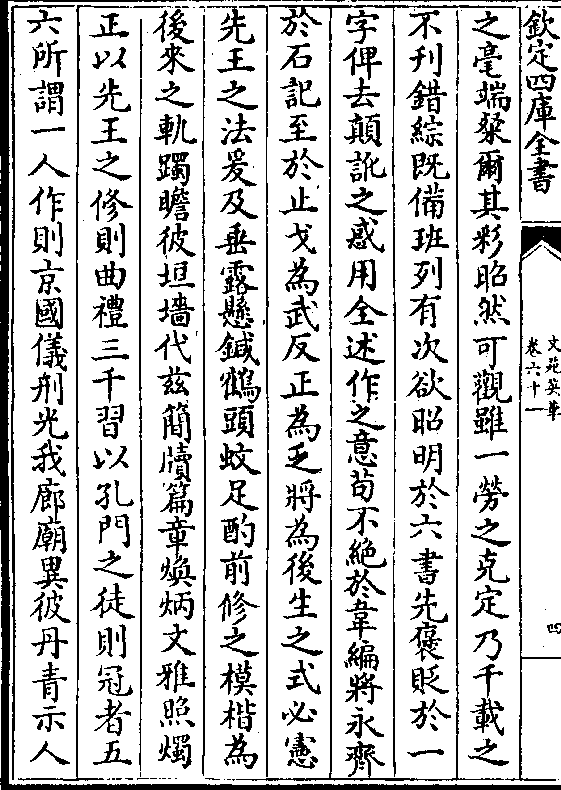 欽定四庫全書
文苑英華
卷六十一
四
之毫端粲爾其彩昭然可觀雖一勞之克定乃千載之
不刊錯綜既備班列有次欲昭明於六書先褒貶於一
字俾去顛訛之惑用全述作之意苟不絶於韋編將永齊
於石記至於止戈為武反正為乏將為後生之式必憲
先王之法爰及垂露懸鍼鶴頭蚊足酌前修之模楷為
後來之軌躅瞻彼垣墻代兹簡牘篇章煥炳文雅照燭
正以先王之修則曲禮三千習以孔門之徒則冠者五
六所謂一人作則京國儀刑光我廊廟異彼丹青示人